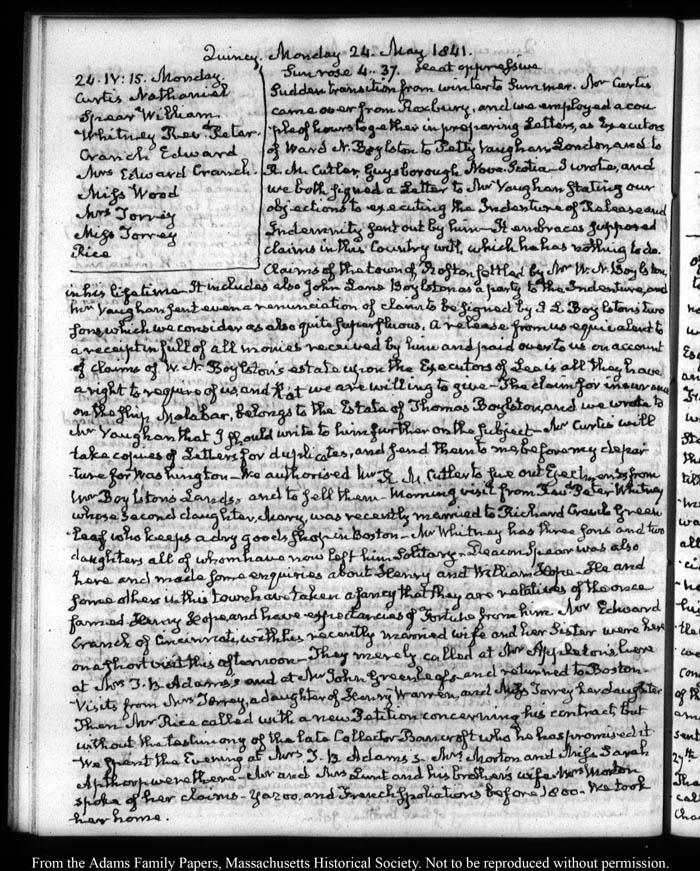 Quincy. Monday 24. May 1841.
24. IV: 15. Monday.
Curtis Nathaniel
Spear William
Whitney Revd Peter.
Cranch Edward
Mrs Edward Cranch.
Miss Wood
Mrs Torrey
Miss Torrey
Rice
Sun rose 4..37. Heat oppressive
Sudden transition from winter to Summer. Mr Curtis
came over from Roxbury, and we employed a cou
ple of hours together in preparing Letters, as Executors
of Ward N. Boylston to Petty Vaughan, London, and to
R. M. Cutler, Guysborough Nova-Scotia—I wrote, and
we both signed a Letter to Mr Vaughan stating our
objections to executing the Indenture of Release and
Indemnity sent out by him—It embraces supposed
claims in this Country with which he has nothing to do.
Claims of the town of Boston settled by Mr W. N. Boylston,
in his life time. It includes also John Lane Boylston as a party to the Indenture, and
Mr Vaughan sent even a renunciation of claim to be signed by J L. Boylston's two
sons which we consider as also quite superfluous. A release from us equivalent to
a receipt in full of all monies received by him and paid over to us on account
of claims of W. N. Boylston's estate upon the Executors of Lea is all they have
a right to require of us, and that we are willing to give—The claim for insurance
on the ship Malabar, belongs to the Estate of Thomas Boylston, and we wrote to
Mr Vaughan that I should write to him further on the subject—Mr Curtis will
take copies of Letters for duplicates, and send them to me before my depar
ture for Washington—We authorised Mr R. M. Cutler to sue out Ejectments from
Mr Boylston's Lands, and to sell them—Morning visit from Revd Peter Whitney
whose second daughter, Mary, was recently married to Richard Green
leaf who keeps a dry goods shop in Boston—Mr Whitney has three sons and two
daughters all of whom have now left him solitary—Deacon Spear was also
here and made some enquiries about Henry and William Hope—He and
some others in this town have taken a fancy that they are relatives of the once
famed Henry Hope and have expectancies of Fortune from him Mr Edward
Cranch of Cincinnati, with his recently married wife and her Sister were here
on a short visit this afternoon—They merely called at Mr Appleton's, here
at Mrs T. B. Adams's and at Mr John Greenleaf's and returned to Boston—
Visits from Mrs Torrey, a daughter of Henry Warren, and Miss Torrey her daughter
Then Mr Rice called with a new Petition concerning his contract, but
without the testimony of the late Collector Bancroft who he has promised it
We spent the Evening at Mrs T. B Adams's Mrs Morton and Miss Sarah
Apthorp were there—Mr and Mrs Lunt and his brother's wife. Mrs Morton
spoke of her claims—Yazoo, and French spoliations before 1800—We took
her home.
From the Adams Family Papers, Massachusetts Historical Society. Not to be reproduced without permission.